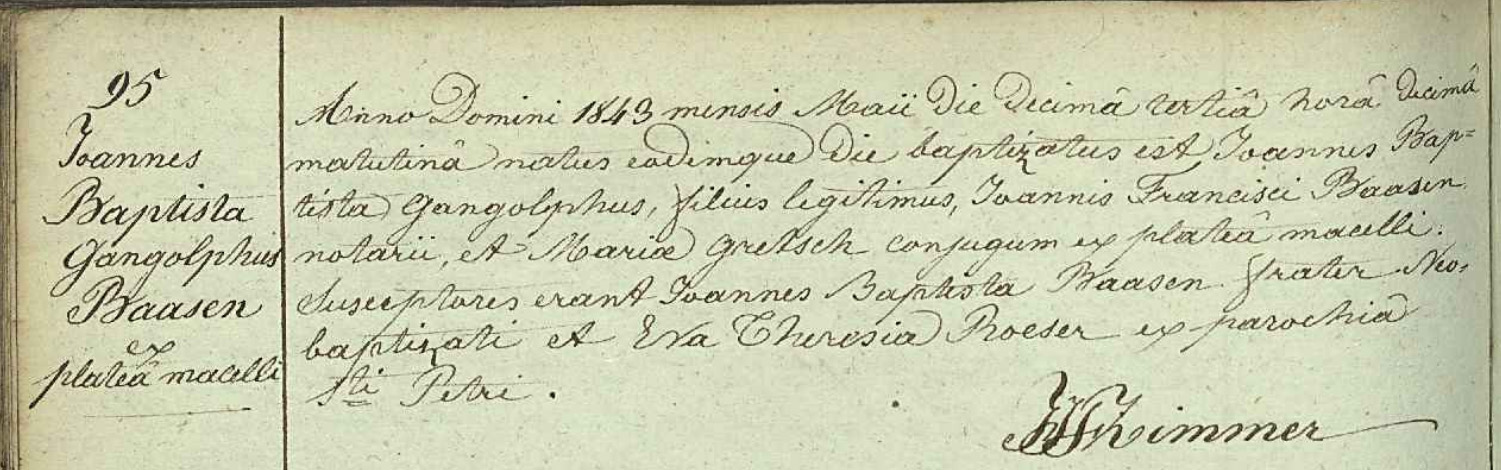 95
Joannes
Baptista
Gangolphus
Baasen
ex
plateâ macelli
Anno Domini 1843 mensis Maii die decimâ tertiâ horâ decimâ
matutinâ natus eodemque die baptizatus est Joannes Bap=
tista Gangolphus, filius legitimus, Joannis Francisci Baasen
notarii, et Mariæ Gretsch conjugum ex plateâ macelli.
Susceptores erant Joannes Baptista Baasen frater Neo-
baptizati et Eva Theresia Roeser ex parochia
Sti Petri.
Kimmer